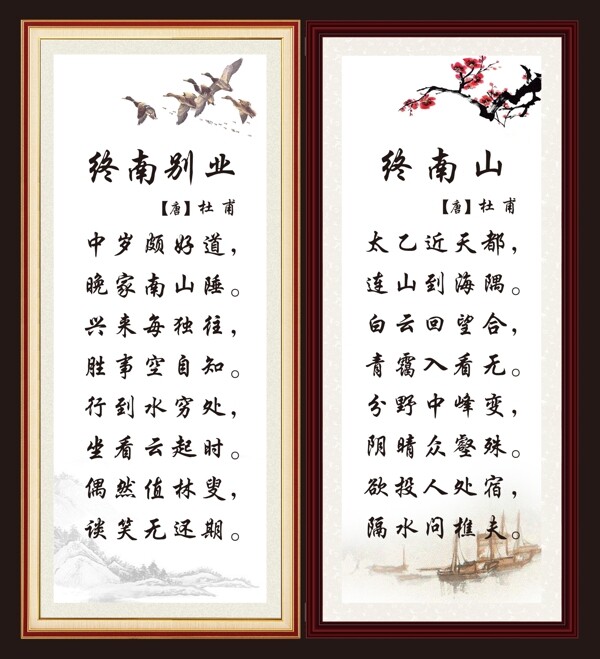 终南别业
【唐】杜甫
中岁颇好道，
晚家南山陲。
兴来每独往，
胜事空自知。
行到水穷处，
坐看云起时。
偶然值林叟，
谈笑无还期。
终南山
【唐】杜甫
太乙近天都，
连山到海隅。
白云回望合，
青霭入看无。
分野中峰变，
阴晴众壑殊。
欲投人处宿，
隔水问樵夫。